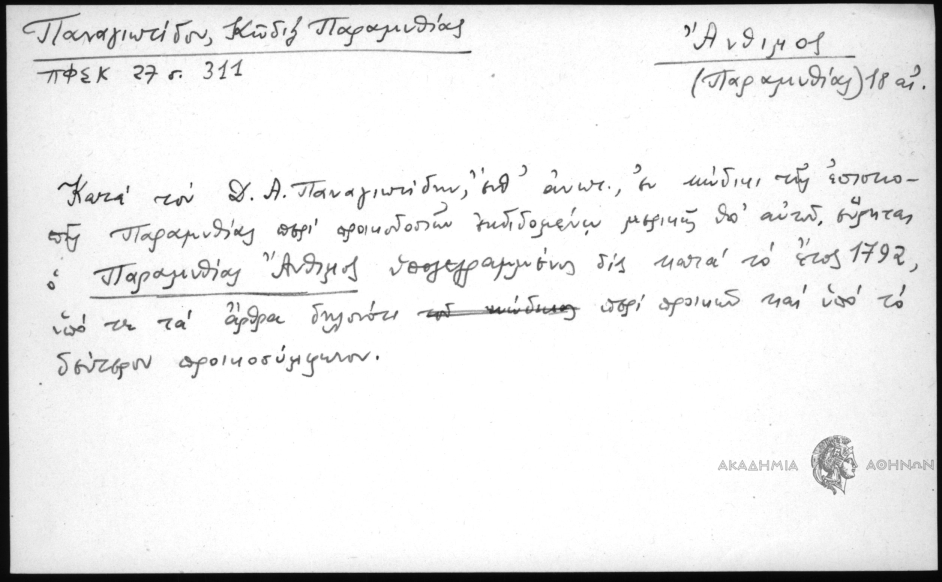 Παναγιωτίδου, Κῶδιξ Παραμυθίας
ΠΦΣΚ 27 σ. 311
Ἄνθιμος
(Παραμυθίας) 18 αἰ.
Κατά τόν Δ. Α. Παναγιωτίδην, ἔνθ' ἀνωτ., ἐν κώδικι τῆς ἐπισκο-
πῆς Παραμυθίας περί προικοδοσιῶν ἐκδιδομένῳ μερικῶς ὑπ' αὐτοῦ, εὕρηται
ὁ Παραμυθίας Ἄνθιμος ὑπογεγραμμένος δίς κατά τό ἔτος 1792,
ὑπό τε τά ἄρθρα δηλονότι τοῦ κώδικος περί προικῶν καί ὑπό τό
δεύτερον προικοσύμφωνον.
ΑΚΑΔΗΜΙΑ ΑΘΗΝΩΝ